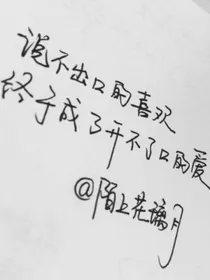 说不出口的喜欢
终于成了开不了口的爱
@陌上花漓月